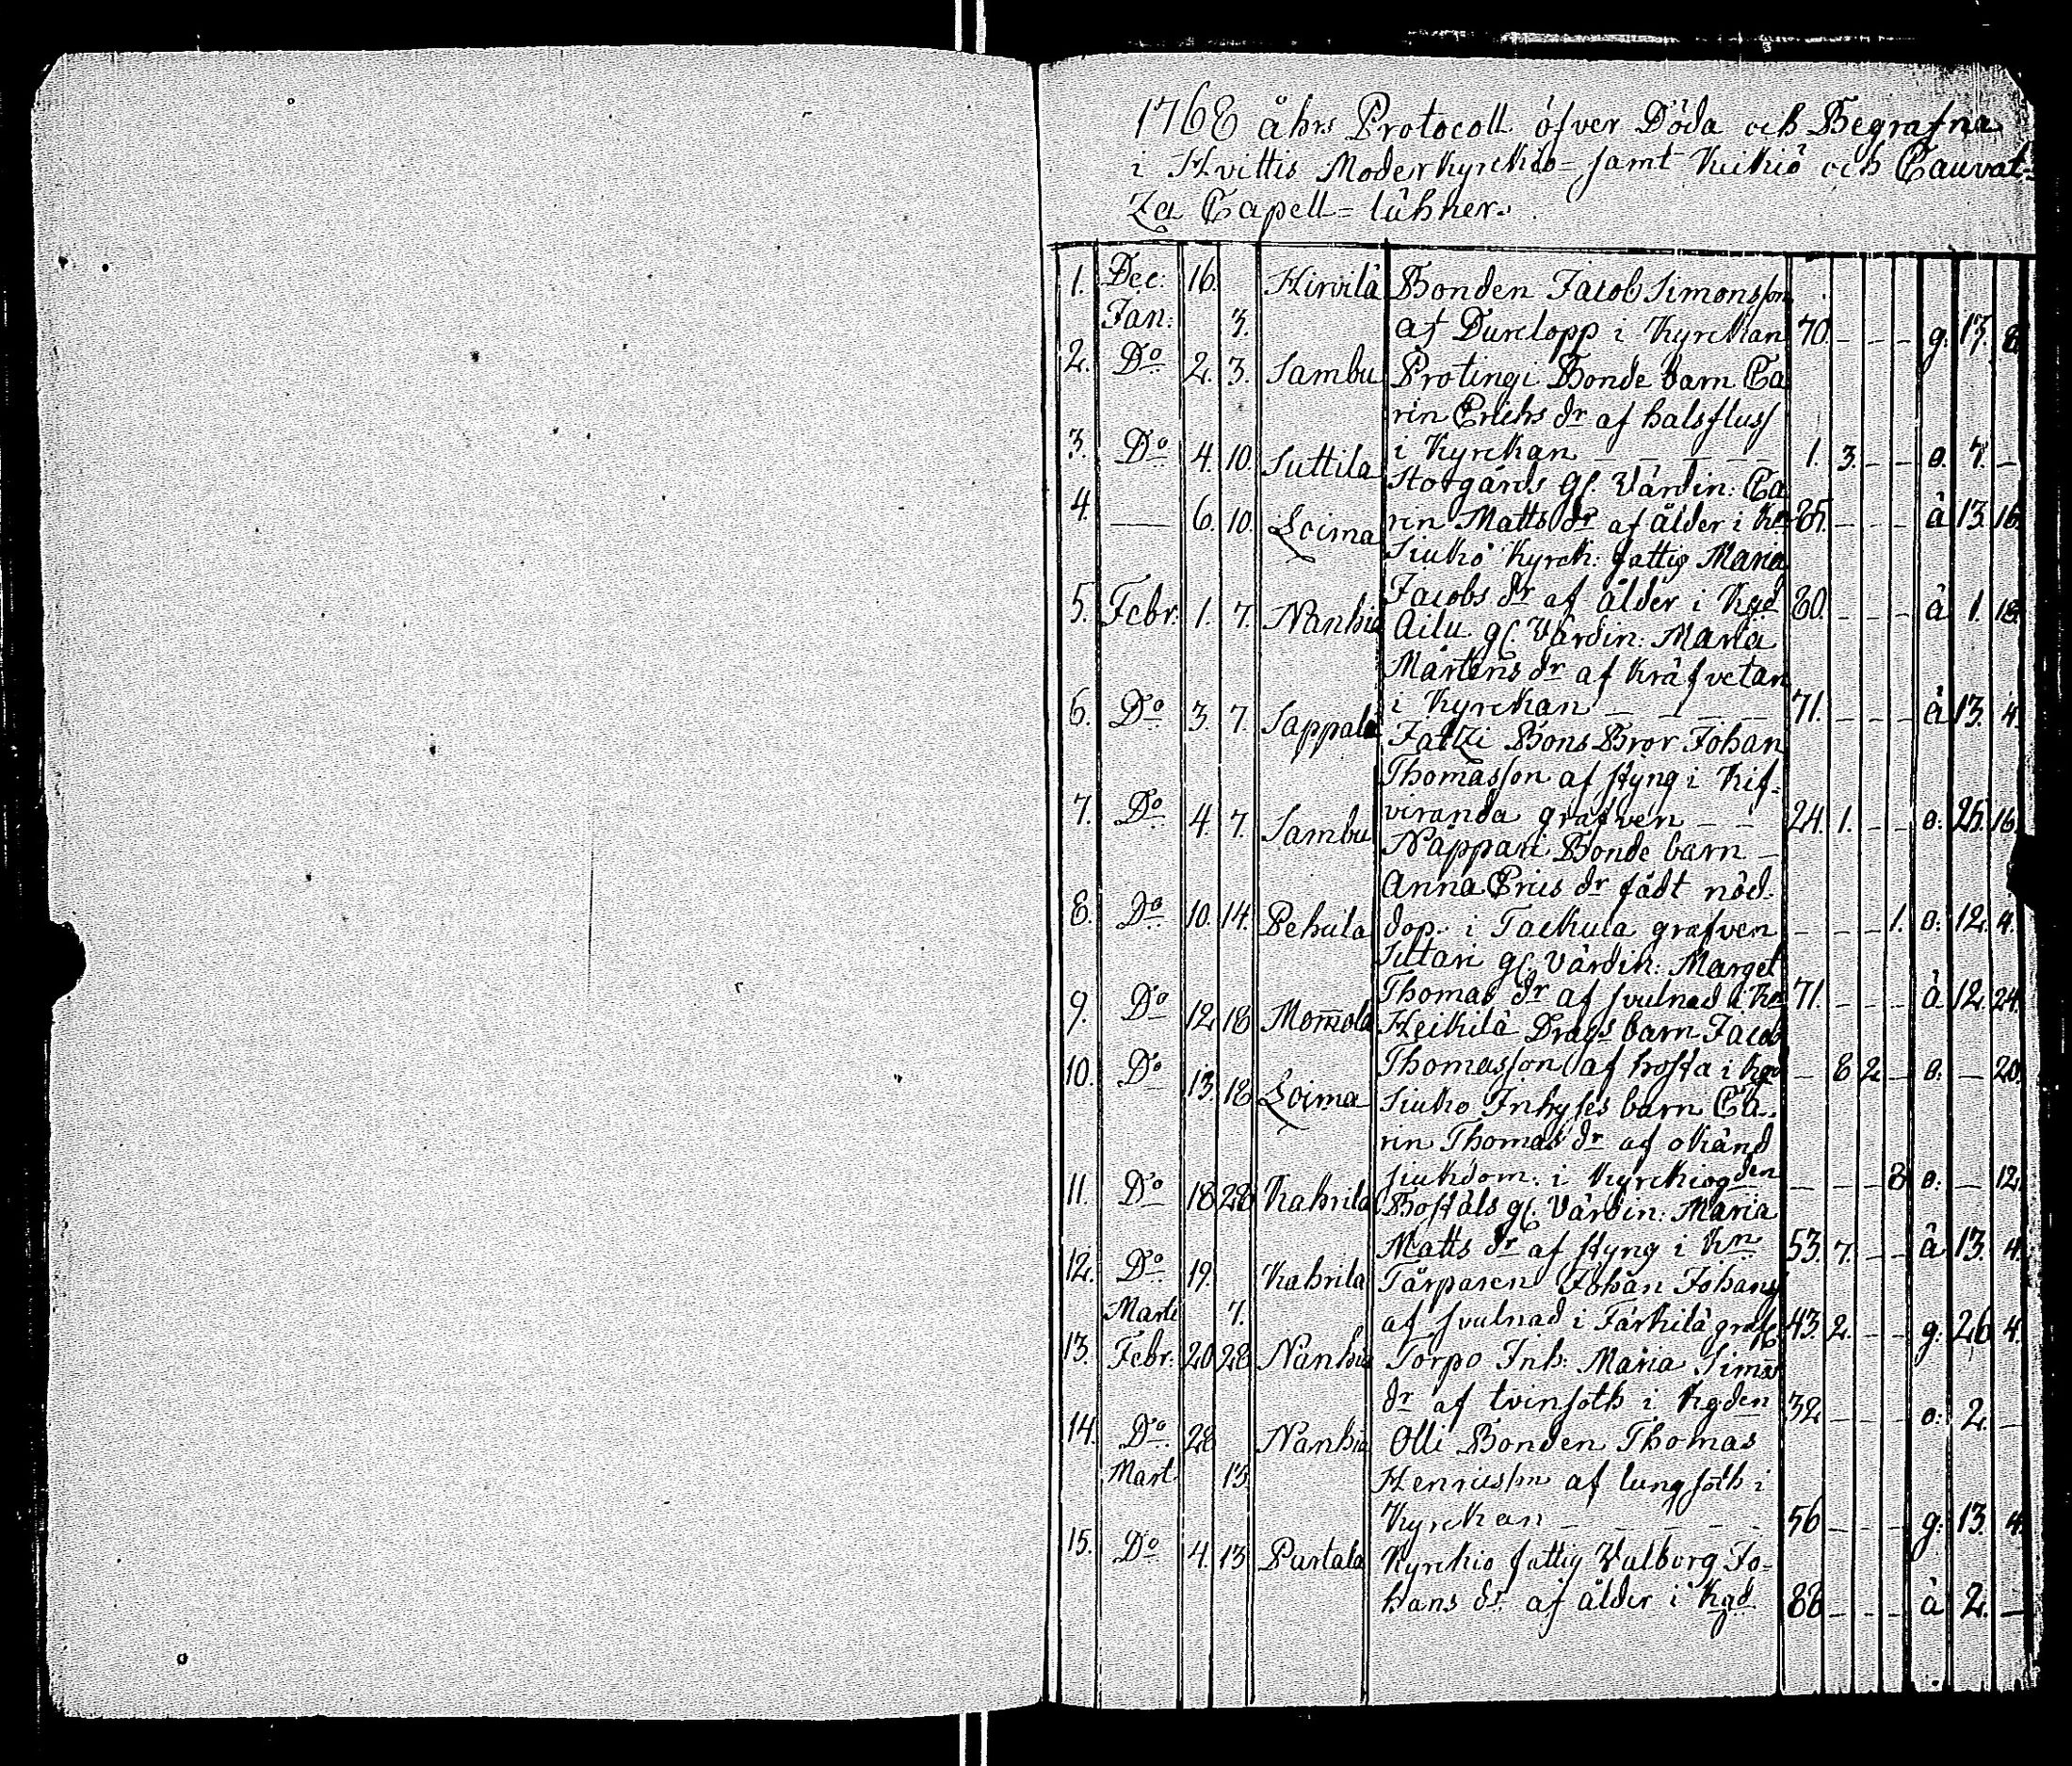 1768 åhrs Protocoll öfver Döda och Begrafna
i Hvittis Moderkyrckio- samt Keikiö och Cauvat-
za Capell-lähner.
1. Dec: 16. Hirvilä Bonden Jacob Simonsson
Jan: 3. af Durclopp i Kyrckan 70. - - - g. 17. 8.
2. Do 2. 3. Sambu Protingi Bonde barn Ca
rin Erichs dr af halsfluss
i Kyrckan - - - - - 1. 3. - - o. 7. -
3. Do 4. 10. Suttila Storgårds gl. Värdin: Ca
rin Matts dr af ålder i Kn 85. - - - ä 13. 16.
4. - 6. 10. Loima Siuko Kyrck: fattig Maria
Jacobs dr af ålder i Kgd 80. - - - ä 1. 18.
5. Febr: 1. 7. Nanhia Ailu gl. Värdin: Maria
Mårtens dr af Kräfvetan
i Kyrckan - - - - 71. - - - ä 13. 4.
6. Do 3. 7. Sappala Jatzi Bons Bror Johan
Thomasson af styng i Kif-
viranda grafven - - 24. 1. - - o. 25. 16.
7. Do 4. 7. Sambu Näppari Bonde barn -
Anna Erics dr födt nöd-
dop. i Tackula grafven - - - 1. o. 12. 4.
8. Do 10. 14. Pehula Sittari gl. Värdin: Marget
Thomas dr af svulnad i Kn 71. - - - ä. 12. 24.
9. Do 12 18 Mom̄ola Heikilä Drags barn Jacob
Thomasson af hosta i Kgd - 8 2 - o. - 20.
10. Do 13. 18 Loima Siuko Inhyses barn Ca-
rin Thomas dr af okänd
siukdom. i Kyrckiogden - - - 8 o. - 12.
11. Do 18 28 Kahrila Boställs gl. Värdin: Maria
Matts dr af styng i Kn 53. 7. - - ä 13. 4.
12. Do 19. Kahrila Tårparen Johan Johans
Marti 7. af svulnad i Färkilä graf 43. 2. - - g. 26 4.
13. Febr: 20 28 Nanhia Torpo Inh: Maria Simōs
dr af tvinsoth i Kgden 32 - - - o: 2. -
14. Do 28 Nanhia Olli Bonden Thomas
Mart 13. Henricsson af lungsoth i
Kyrckan - - - - - 56 - - - g: 13. 4.
15. Do 4. 13 Puntala Kyrckio fattig Valborg Jo-
hans dr af ålder i Kgd. 88 - - - ä 2. -